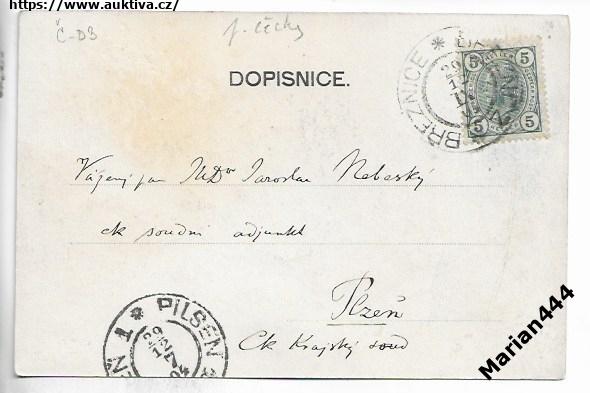 https://www.auktiva.cz/
Č-D3
j. čechy
DOPISNICE.
BŘEZNICE *
5 5
5 5
Vážený pan MUDr Jaroslav Nebeský
ck soudní adjunkt
Plzeň
Ck Krajský soud
1 * PILSEN
Marian444